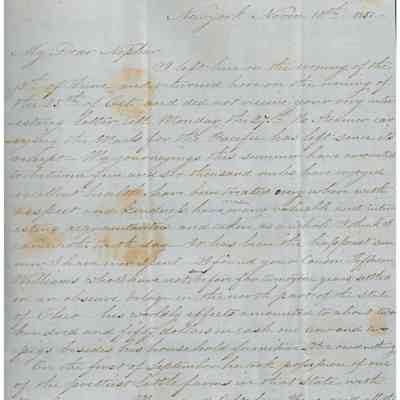 New york Novem 10th 185
My Dear Nephew
I left here on the evening of the
15th of June and returned here on the evening of
the 25th of Oct. and did not receive your very inter
esting letter till Monday the 27th No Steamer car
rying the Mails for the Pacific has left since its
receipt My journeyings this summer have amounted
to between five and six thousand miles have enjoyed
excellent health have been treated every where with
respect and kindness have many valuable and inter
esting acquaintances and taken as a whole I think I
can with truth say it has been the happiest sum
mer I have ever spent I found your cousin
Williams who I have not before for many years settled
in an obscure village in the north part of the state
of Ohio his worldly effects amounted to about two
hundred and fifty dollars in cash one cow and two
pigs besides his household furniture
On the first of September he took possession of one
of the prettiest little farms in that state with